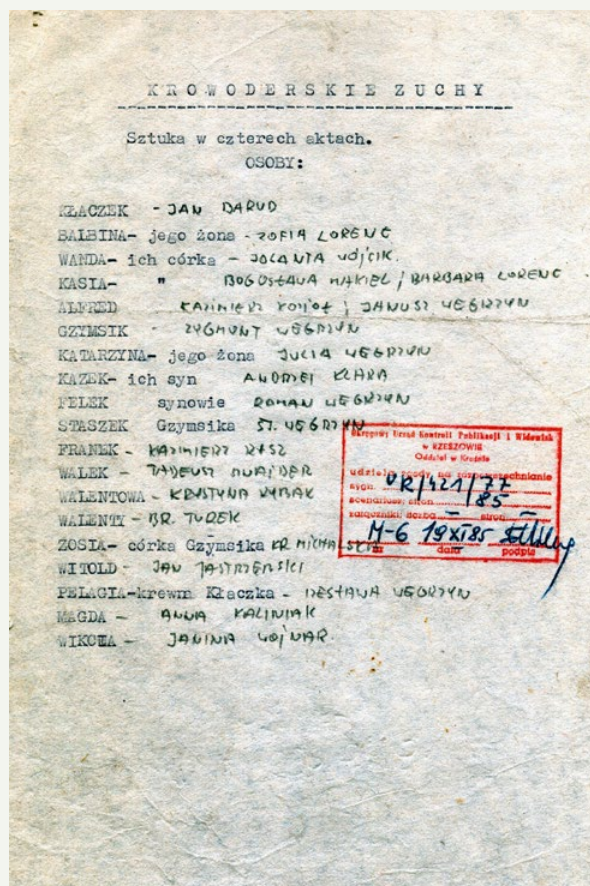 KROWODERSKIE ZUCHY
Sztuka w czterech aktach.
OSOBY:
KŁACZEK - JAN BARUD
BALBINA- jego żona - ZOFIA LORENC
WANDA- ich córka - JOLANTA WÓJCIK.
KASIA- " BOGUSŁAWA MAKIEL / BARBARA LORENC
ALFRED KAZIMIERZ / JANUSZ WĘGRZYN
GZYMSIK - ZYGMUNT WĘGRZYN
KATARZYNA- jego żona JULIA WĘGRZYN
KAZEK- ich syn ANDRZEJ KLARA
FELEK synowie ROMAN WĘGRZYN
STASZEK Gzymsika ST. WĘGRZYN
FRANEK - KAZIMIERZ RYSZ
WALEK - TADEUSZ
WALENTOWA - KRYSTYNA RYBAK
WALENTY - BR. TUREK
ZOSIA- córka Gzymsika KR MICHALSKA
WITOLD - JAN JASTRZEMSKI
PELAGIA-krewna Kłaczka - WĘGRZYN
MAGDA - ANNA KALINIAK
WIKCIA - JANINA WOJNAR
Okręgowy Urząd Kontroli Publikacji i Widowisk
w RZESZOWIE
Oddział w Krośnie
udziela zgody na rozpowszechnianie
sygn. UR/421/77
scenariusz; stron /85
załączniki; liczba — stron —
M-6 19 XI 85
nr data podpis